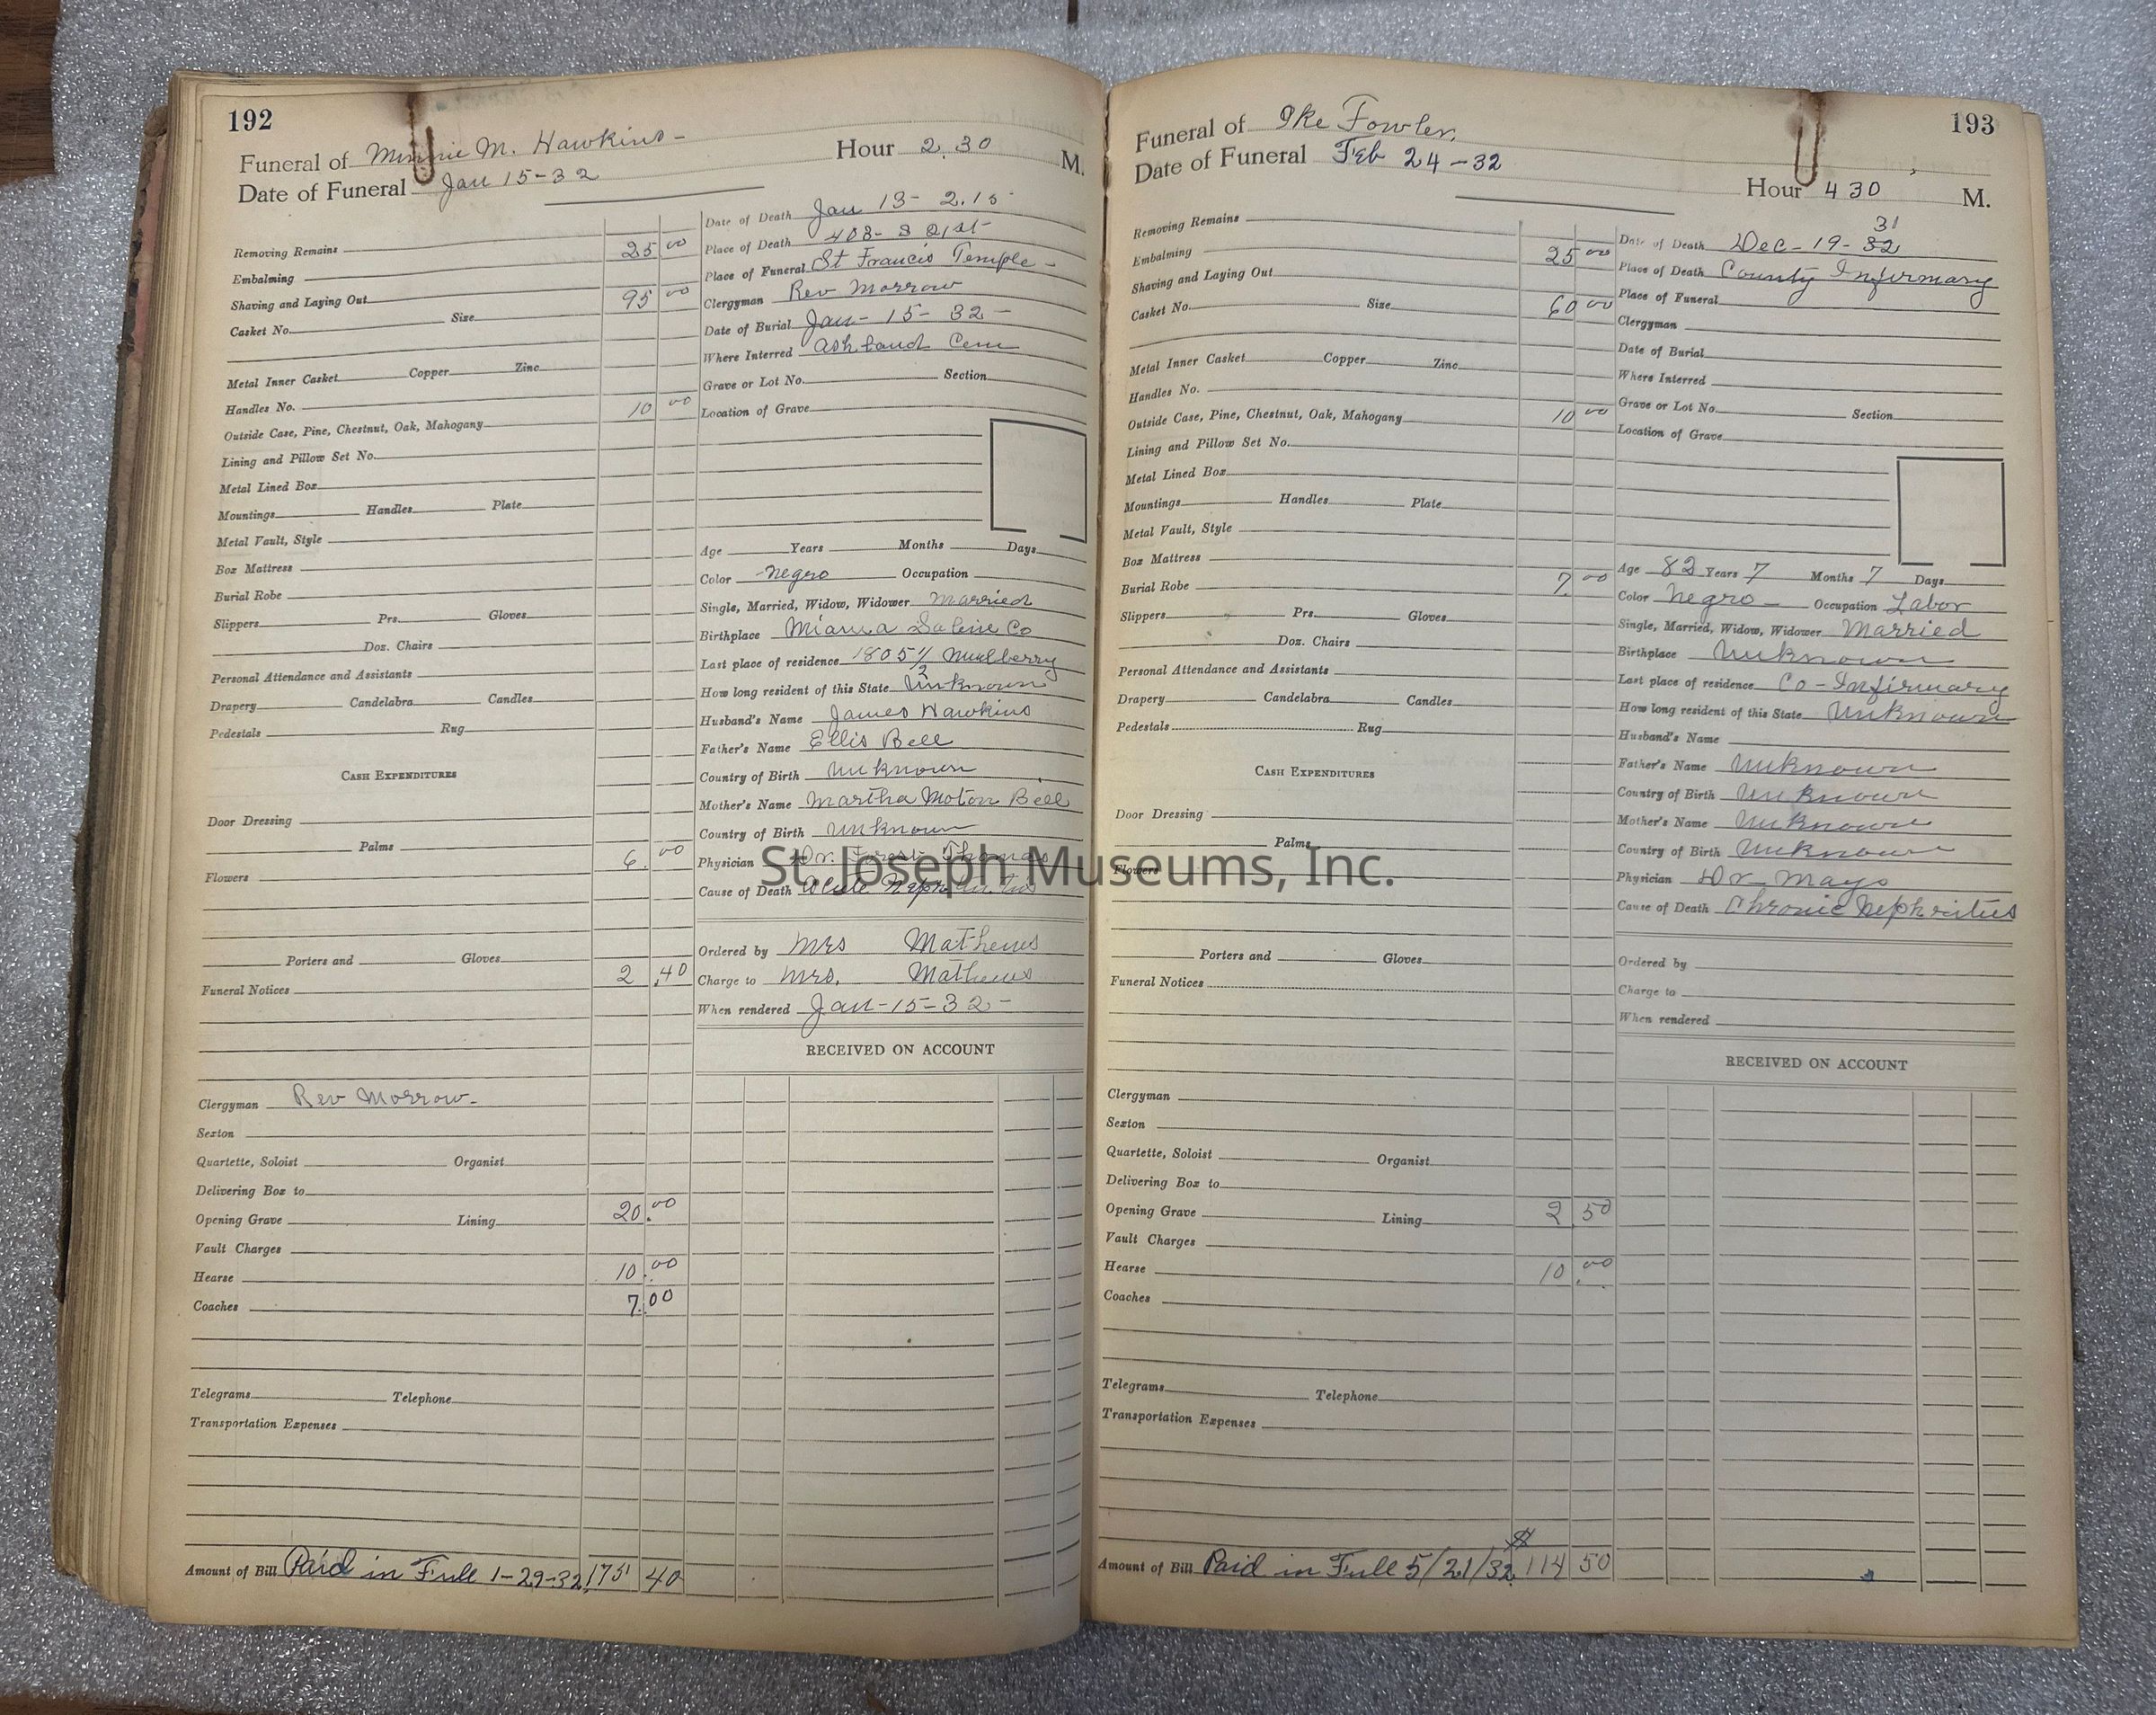 192
Funeral of Minnie M. Hawkins-
Hour 2.30 M.
Date of Funeral Jan 15-32
Removing Remains 25 00
Embalming
Shaving and Laying Out 95 00
Casket No. Size
Metal Inner Casket Copper Zinc
Handles No. 10 00
Outside Case, Pine, Chestnut, Oak, Mahogany
Lining and Pillow Set No.
Metal Lined Box
Mountings Handles Plate
Metal Vault, Style
Box Mattress
Burial Robe
Slippers Prs. Gloves
Doz. Chairs
Personal Attendance and Assistants
Drapery Candelabra Candles
Pedestals Rug
CASH EXPENDITURES
Door Dressing
Palms
Flowers 6. 00
Porters and Gloves
Funeral Notices 2 .40
Clergyman Rev Morrow-
Sexton
Quartette, Soloist Organist
Delivering Box to
Opening Grave Lining 20.00
Vault Charges
Hearse 10.00
Coaches 7.00
Telegrams Telephone
Transportation Expenses
Amount of Bill Paid in Full 1-29-32 175 40
Date of Death Jan 13- 2.15
Place of Death 403- S 21st-
Place of Funeral St Francis Temple-
Clergyman Rev Morrow
Date of Burial Jan- 15- 32-
Where Interred Ashland Cem
Grave or Lot No. Section
Location of Grave
Age Years Months Days
Color -Negro Occupation
Single, Married, Widow, Widower Married
Birthplace Saline Co
Last place of residence 1805 1/2 Mulberry
How long resident of this State Unknown
Husband's Name James Hawkins
Father's Name Ellis Bell
Country of Birth Unknown
Mother's Name Martha Moton Bell
Country of Birth Unknown
Physician Dr. Forest Thomas
Cause of Death Acute
Ordered by Mrs Mathews
Charge to Mrs. Mathews
When rendered Jan-15-32-
RECEIVED ON ACCOUNT
193
Funeral of Ike Fowler.
Date of Funeral Feb 24-32
Hour 430 M.
Removing Remains
Embalming 25 00
Shaving and Laying Out
Casket No. Size 60 00
Metal Inner Casket Copper Zinc
Handles No.
Outside Case, Pine, Chestnut, Oak, Mahogany 10 00
Lining and Pillow Set No.
Metal Lined Box
Mountings Handles Plate
Metal Vault, Style
Box Mattress
Burial Robe 7. 00
Slippers Prs. Gloves
Doz. Chairs
Personal Attendance and Assistants
Drapery Candelabra Candles
Pedestals Rug
CASH EXPENDITURES
Door Dressing
Palms
Flowers
Porters and Gloves
Funeral Notices
Clergyman
Sexton
Quartette, Soloist Organist
Delivering Box to
Opening Grave Lining 2 50
Vault Charges
Hearse 10.00
Coaches
Telegrams Telephone
Transportation Expenses
Amount of Bill Paid in Full 5/21/32 $114 50
31
Date of Death Dec-19-32
Place of Death County Infirmary
Place of Funeral
Clergyman
Date of Burial
Where Interred
Grave or Lot No. Section
Location of Grave
Age 82 Years 7 Months 7 Days
Color Negro- Occupation Labor
Single, Married, Widow, Widower Married
Birthplace Unknown
Last place of residence Co-Infirmary
How long resident of this State Unknown
Husband's Name
Father's Name Unknown
Country of Birth Unknown
Mother's Name Unknown
Country of Birth Unknown
Physician Dr Mayo
Cause of Death Chronic Nephritus
Ordered by
Charge to
When rendered
RECEIVED ON ACCOUNT
St. Joseph Museums, Inc.